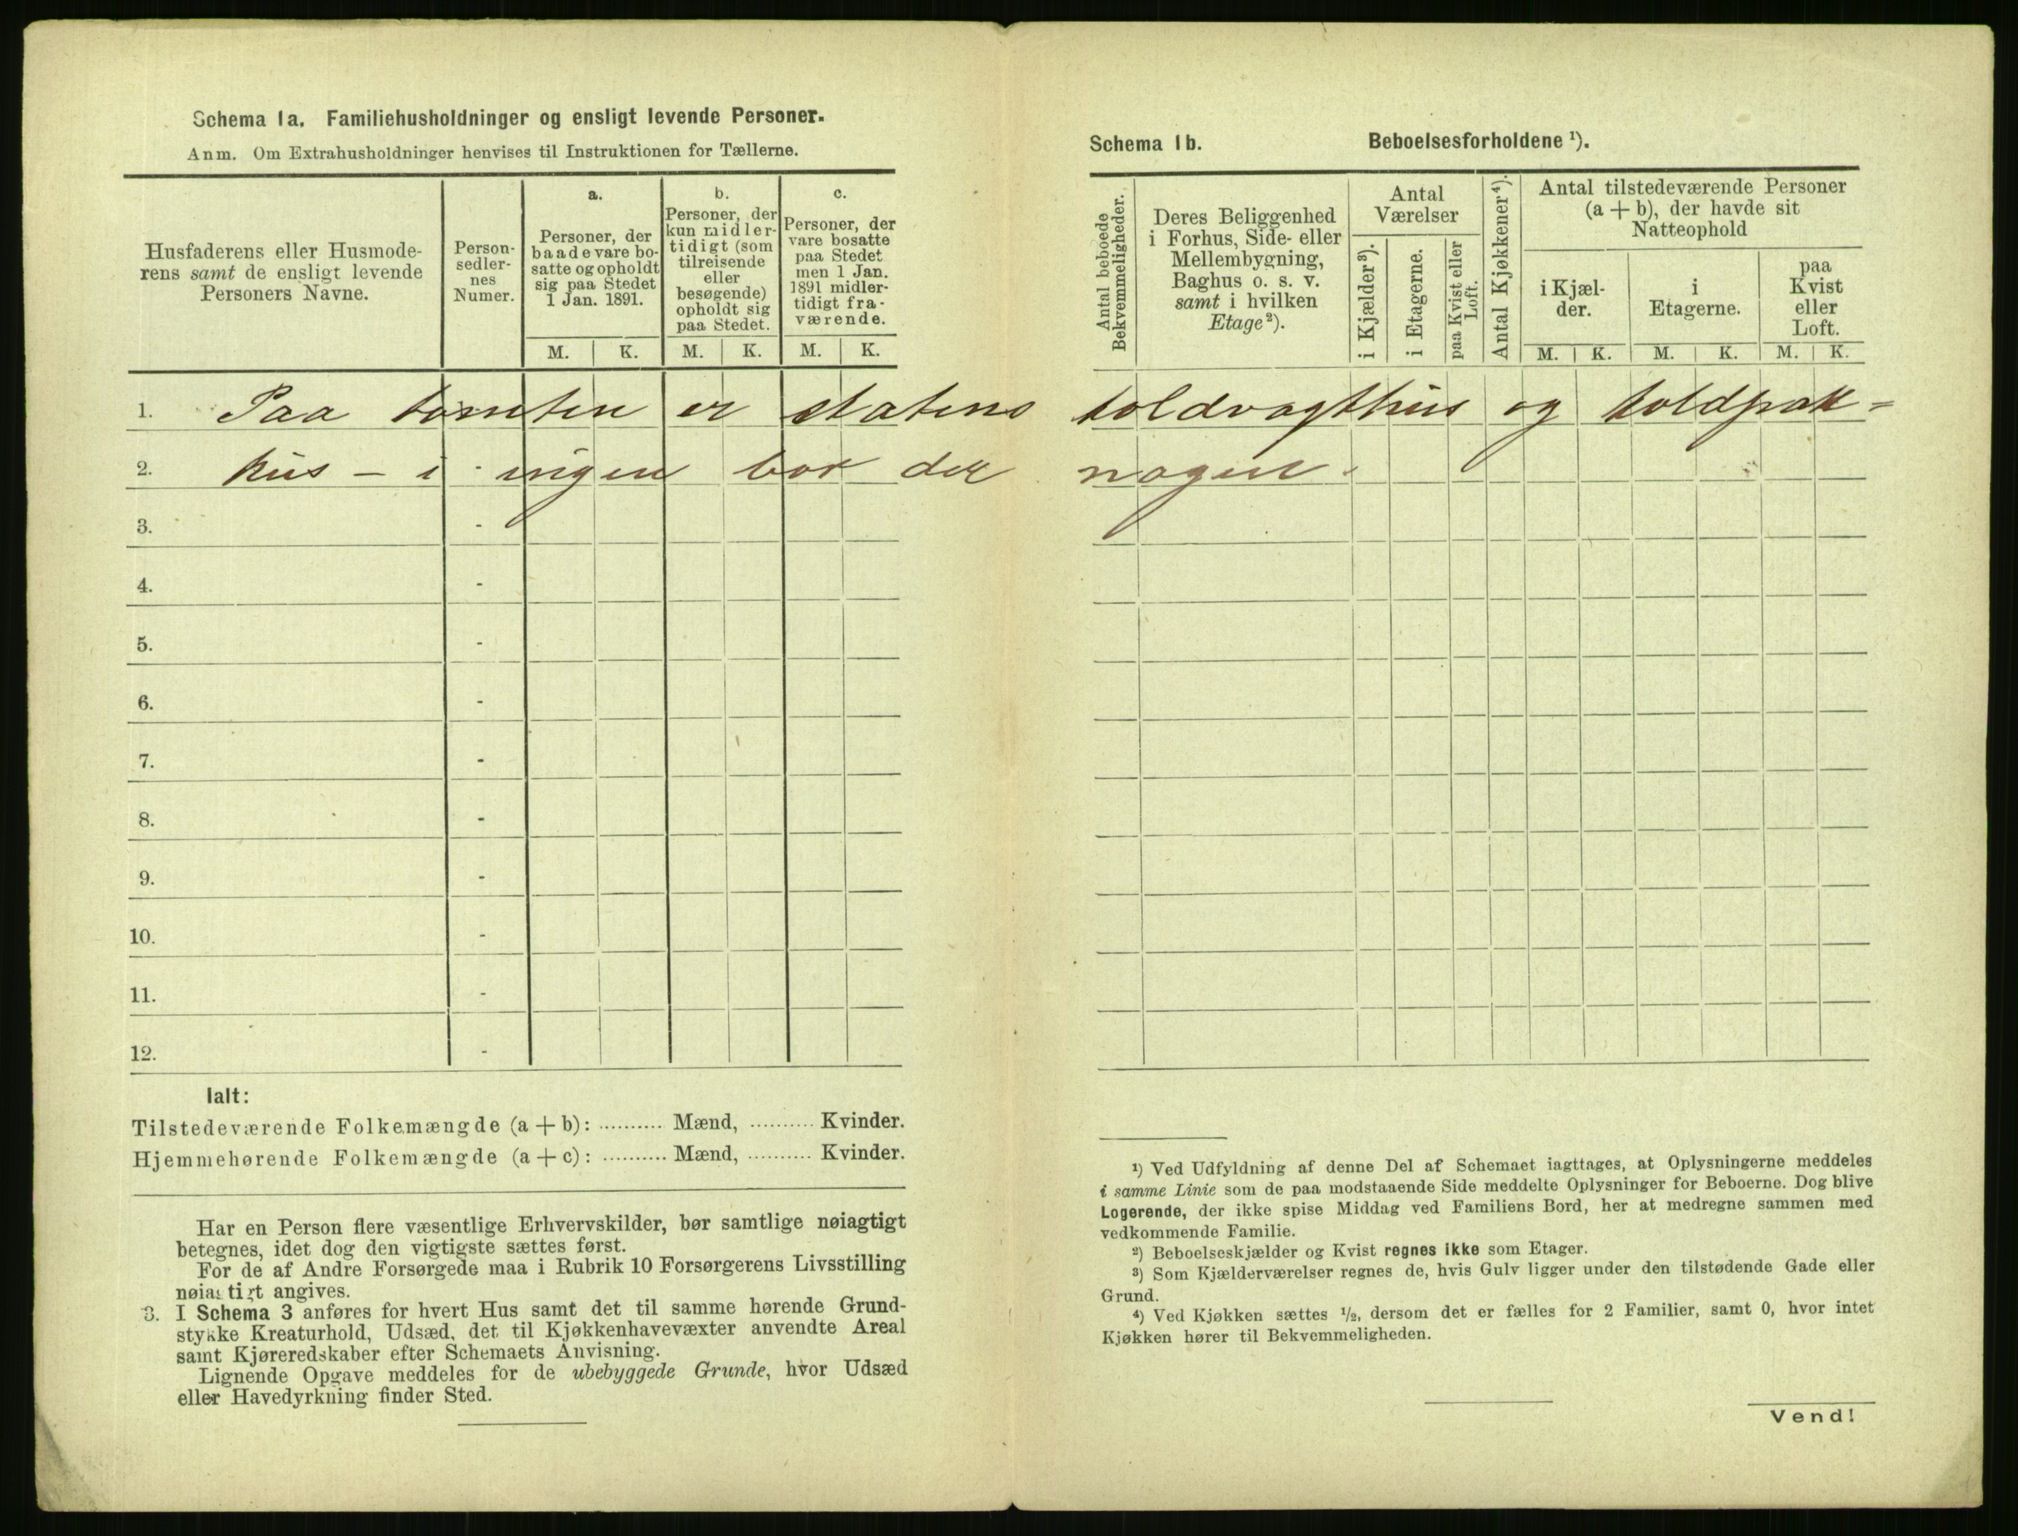 Schema 1a. Familiehusholdninger og ensligt levende Personer.
Anm. Om Extrahusholdninger henvises til Instruktionen for Tællerne.
Husfaderens eller Husmode-
rens samt de ensligt levende
Personers Navne.
Person-
sedler-
nes
Numer.
a.
Personer, der
baade vare bo-
satte og opholdt
sig paa Stedet
1 Jan. 1891.
M. K.
b.
Personer, der
kun midler-
tidigt (som
tilreisende
eller
besøgende)
opholdt sig
paa Stedet.
M. K.
c.
Personer, der
vare bosatte
paa Stedet
men 1 Jan.
1891 midler-
tidigt fra-
værende.
M. K.
1. Paa tomten er statens
2. hus - i ingen bor der
3. -
4. -
5. -
6. -
7. -
8. -
9. -
10. -
11. -
12. -
Ialt:
Tilstedeværende Folkemængde (a + b): .......... Mænd, .......... Kvinder.
Hjemmehørende Folkemængde (a + c): .......... Mænd, .......... Kvinder.
Har en Person flere væsentlige Erhvervskilder, bør samtlige nøiagtigt
betegnes, idet dog den vigtigste sættes først.
For de af Andre Forsørgede maa i Rubrik 10 Forsørgerens Livsstilling
nøiagtigt angives.
3. I Schema 3 anføres for hvert Hus samt det til samme hørende Grund-
stykke Kreaturhold, Udsæd, det til Kjøkkenhavevæxter anvendte Areal
samt Kjøreredskaber efter Schemaets Anvisning.
Lignende Opgave meddeles for de ubebyggede Grunde, hvor Udsæd
eller Havedyrkning finder Sted.
Schema 1b. Beboelsesforholdene ¹).
Antal beboede
Bekvemmeligheder.
Deres Beliggenhed
i Forhus, Side- eller
Mellembygning,
Baghus o. s. v.
samt i hvilken
Etage²).
Antal
Værelser
i Kjælder³).
i Etagerne.
paa Kvist eller
Loft.
Antal Kjøkkener⁴).
Antal tilstedeværende Personer
(a + b), der havde sit
Natteophold
i Kjæl-
der.
M. K.
i
Etagerne.
M. K.
paa
Kvist
eller
Loft.
M. K.
toldvagthus og toldpak-
nogen.
¹) Ved Udfyldning af denne Del af Schemaet iagttages, at Oplysningerne meddeles
i samme Linie som de paa modstaaende Side meddelte Oplysninger for Beboerne. Dog blive
Logerende, der ikke spise Middag ved Familiens Bord, her at medregne sammen med
vedkommende Familie.
²) Beboelseskjælder og Kvist regnes ikke som Etager.
³) Som Kjælderværelser regnes de, hvis Gulv ligger under den tilstødende Gade eller
Grund.
⁴) Ved Kjøkken sættes ½, dersom det er fælles for 2 Familier, samt 0, hvor intet
Kjøkken hører til Bekvemmeligheden.
Vend!